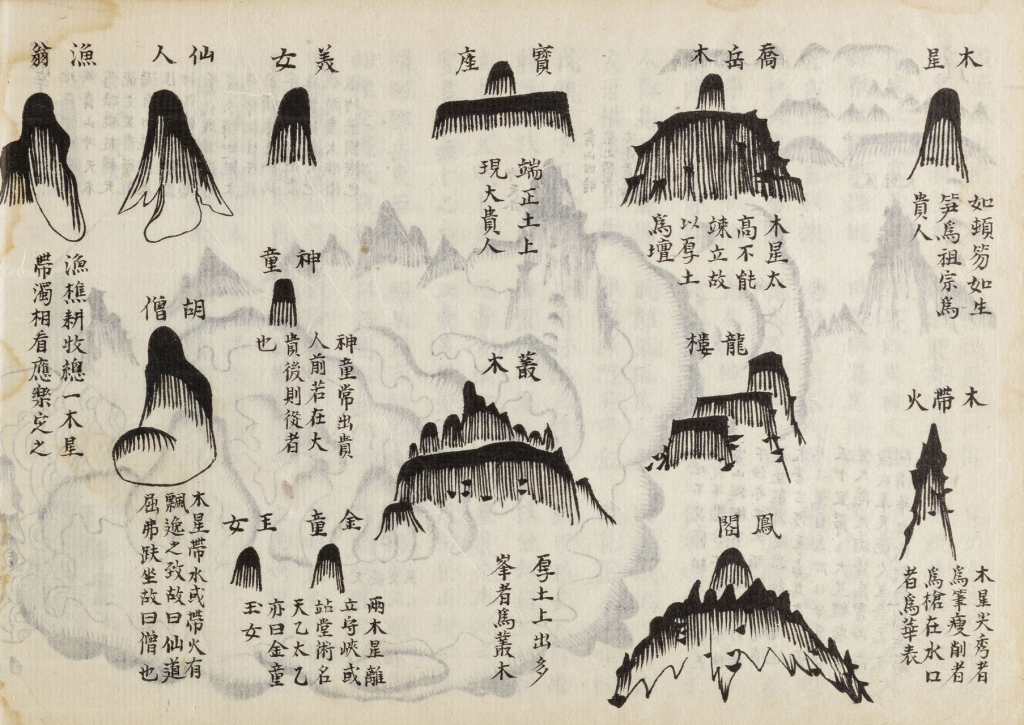 木星
如頓笏如生
笋爲祖宗爲
貴人
木帶火
木星尖秀者
爲筆瘦削者
爲槍在水口
者爲華表
喬岳木
木星太
高不能
竦立故
以厚土
爲壇
龍樓
鳳閣
寶座
端正土上
現大貴人
叢木
厚土上出多
峯者爲叢木
美女
神童
神童常出貴
人前若在大
貴後則從者
也
金童
玉女
兩木星離
立守峽或
站堂術名
天乙太乙
亦曰金童
玉女
仙人
胡僧
木星帶水或帶火有
飄逸之致故曰仙道
屈弗趺坐故曰僧也
漁翁
漁樵耕牧總一木星
帶濁相看應樂定之